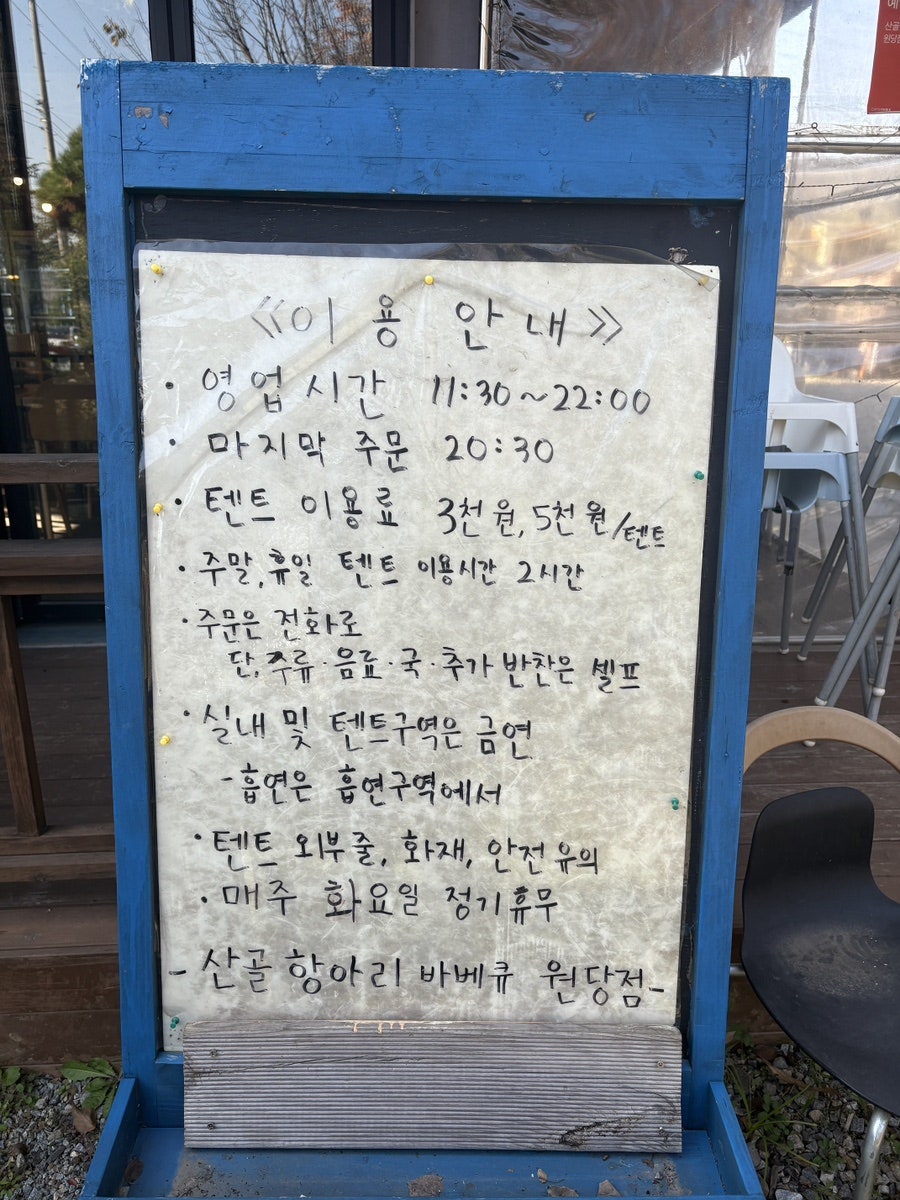 <<이 용 안 내>>
· 영업시간 11:30~22:00
· 마지막 주문 20:30
· 텐트 이용료 3천원, 5천원/텐트
· 주말, 휴일 텐트 이용시간 2시간
· 주문은 전화로
단, 주류·음료·국·추가 반찬은 셀프
· 실내 및 텐트구역은 금연
- 흡연은 흡연구역에서
· 텐트 외부줄, 화재, 안전유의
· 매주 화요일 정기휴무
- 산골항아리 바베큐 원당점 -